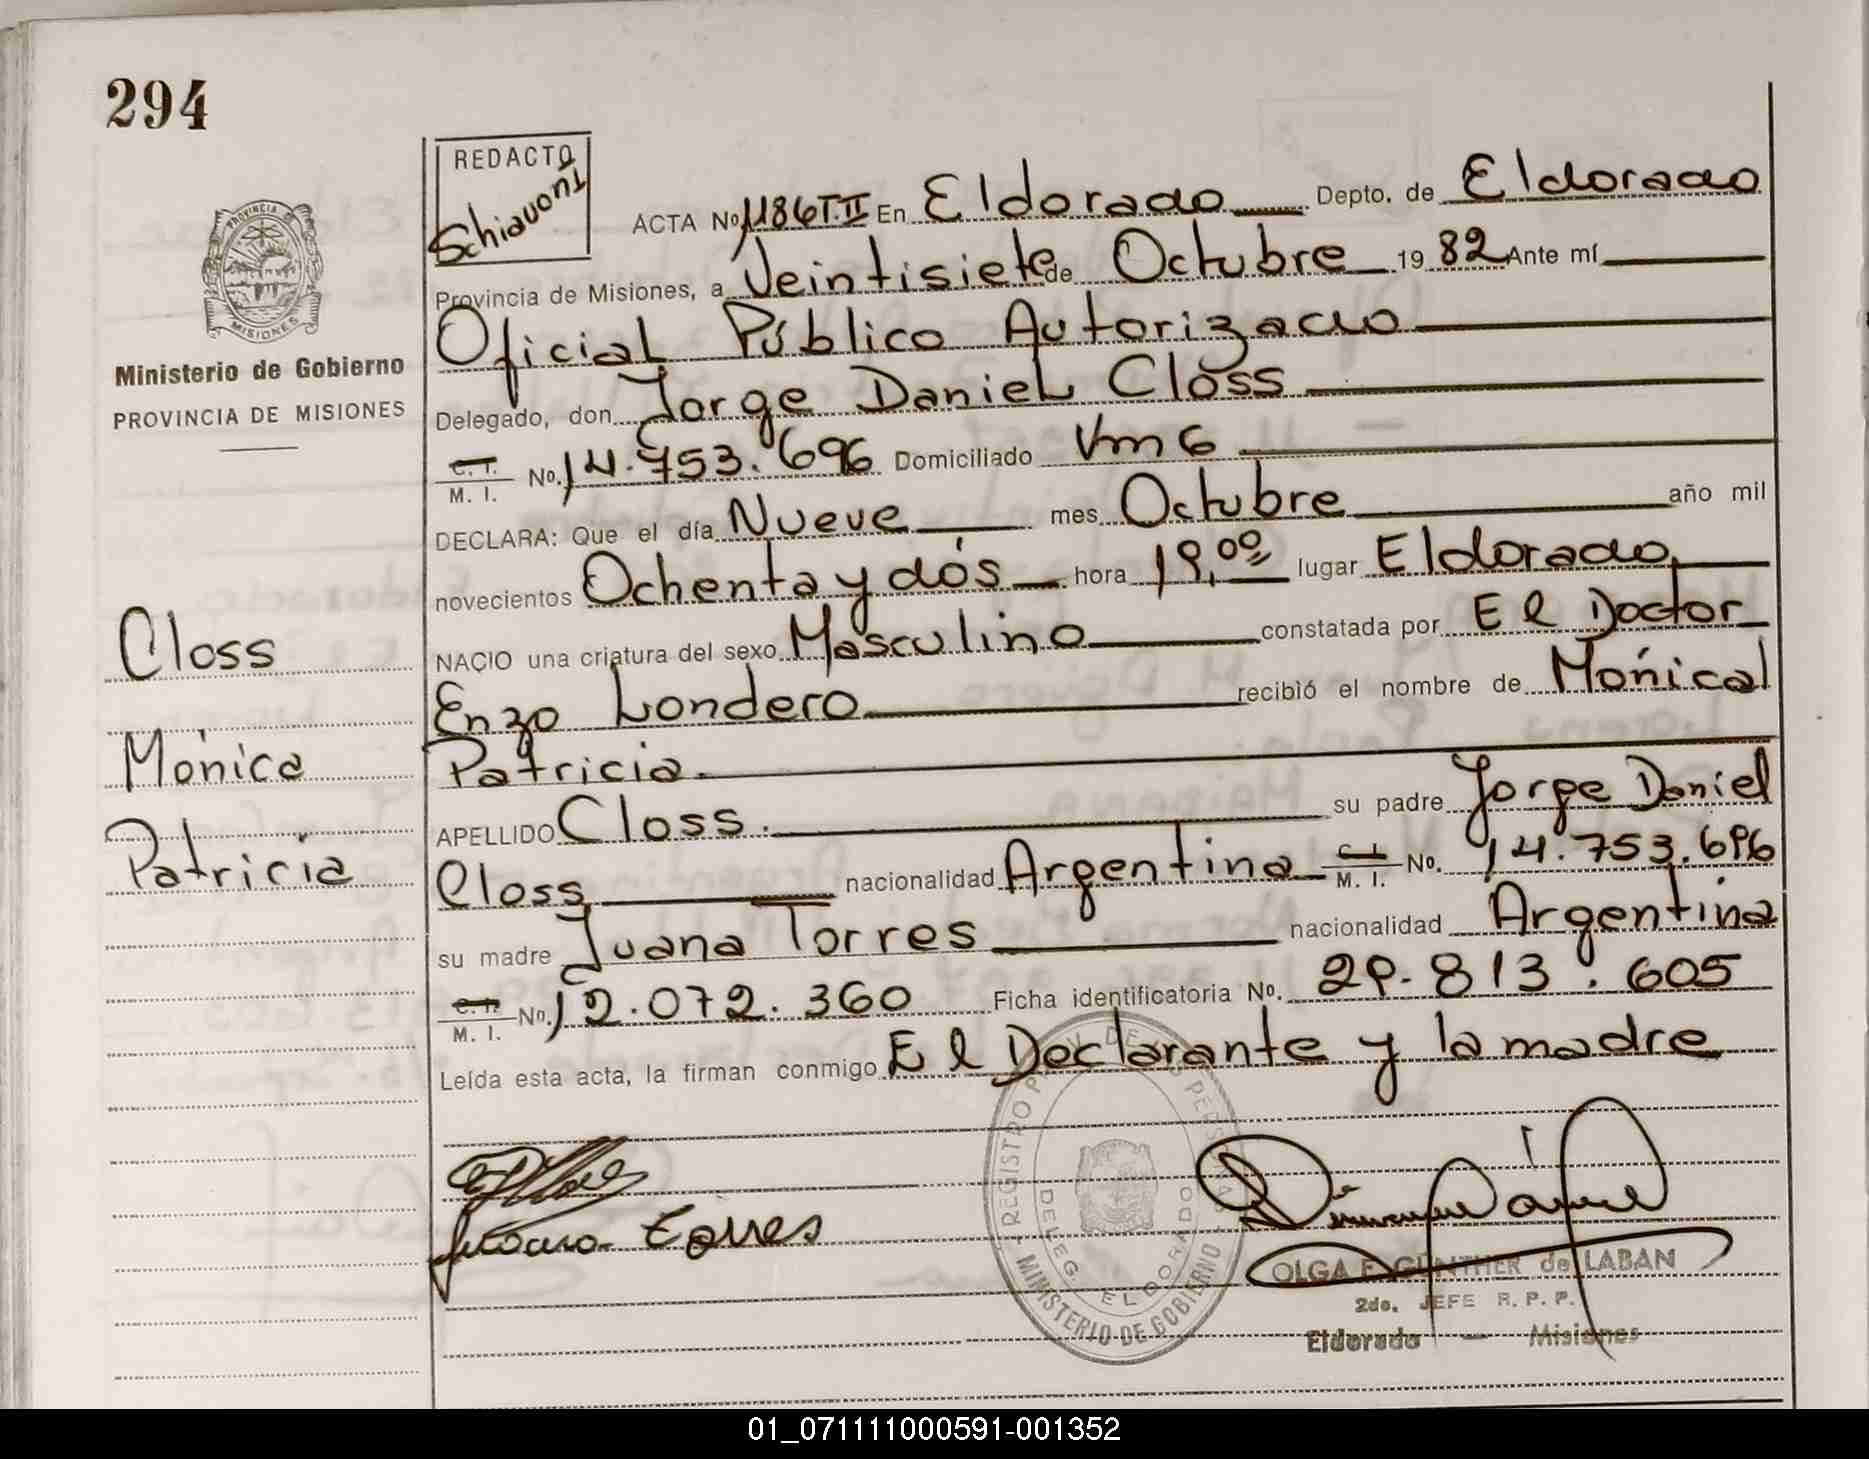 294
REDACTO
Schiavoni
ACTA No. 1186 T.II En Eldorado Depto. de Eldorado
Provincia de Misiones, a Veintisiete de Octubre 1982 Ante mí
Oficial Público Autorizado
Delegado, don Jorge Daniel Closs
C. I. M. I. No. 14.753.696 Domiciliado Km 6
DECLARA: Que el día Nueve mes Octubre año mil
novecientos Ochenta y dós hora 19,00 lugar Eldorado
NACIO una criatura del sexo Masculino constatada por El Doctor
Enzo Londero recibió el nombre de Mónica
Patricia.
APELLIDO Closs. su padre Jorge Daniel
Closs nacionalidad Argentina C. I. M. I. No. 14.753.696
su madre Juana Torres nacionalidad Argentina
C. I. M. I. No. 12.072.360 Ficha identificatoria No. 29.813.605
Leída esta acta, la firman conmigo El Declarante y la madre
Torres
PROVINCIA DE MISIONES
Ministerio de Gobierno
PROVINCIA DE MISIONES
Closs
Mónica
Patricia
DELEG. ELDORADO
MINISTERIO DE GOBIERNO
OLGA F. GÜNTHER de LABAN
2do. JEFE R. P. P.
Eldorado — Misiones
01_071111000591-001352